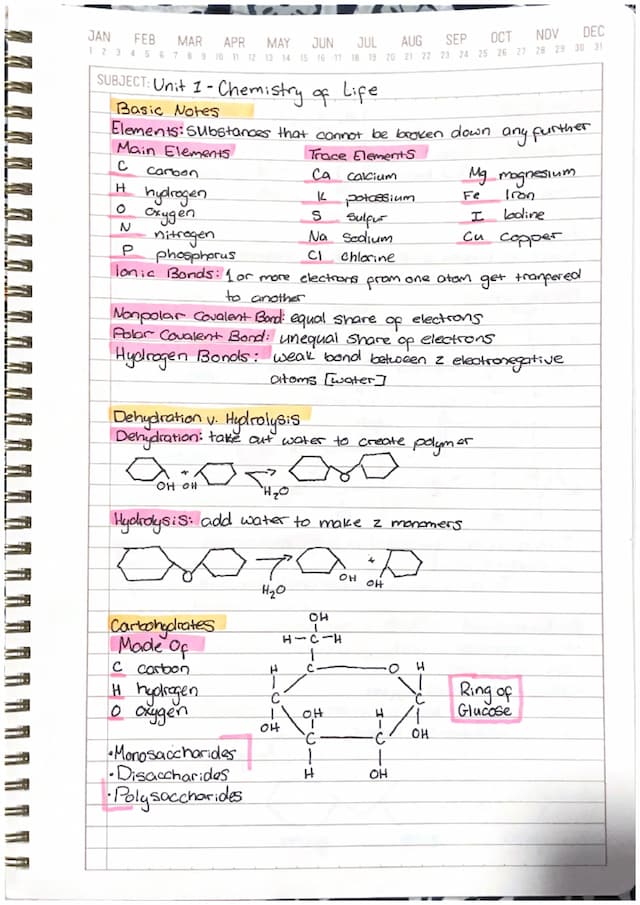 JAN FEB MAR APR MAY JUN JUL AUG SEP OCT NOV DEC
1 2 3 4 5 6 7 8 9 10 11 12 13 14 15 16 17 18 19 20 21 22 23 24 25 26 27 28 29 30 31
SUBJECT: Unit 1 - Chemistry of Life
Basic Notes
Elements: Substances that cannot be broken down any further
Main Elements Trace Elements
C carbon Ca calcium Mg magnesium
H hydrogen K potassium Fe Iron
O oxygen S sulfur I Iodine
N nitrogen Na Sodium Cu copper
P phosphorus Cl chlorine
Ionic Bonds: 1 or more electrons from one atom get tranfered
to another
Nonpolar Covalent Bond: equal share of electrons
Polar Covalent Bond: unequal share of electrons
Hydrogen Bonds: weak bond between 2 electronegative
atoms [water]
Dehydration v. Hydrolysis
Dehydration: take out water to create polymer
OH + OH H₂O O
Hydrolysis: add water to make 2 monomers
O H₂O OH + OH
Carbohydrates
Made Of
C carbon
H hydrogen
O oxygen
•Monosaccharides
•Disaccharides
•Polysaccharides
OH
H-C-H
H C O H
C C
OH OH H OH
C C
H OH
Ring of
Glucose